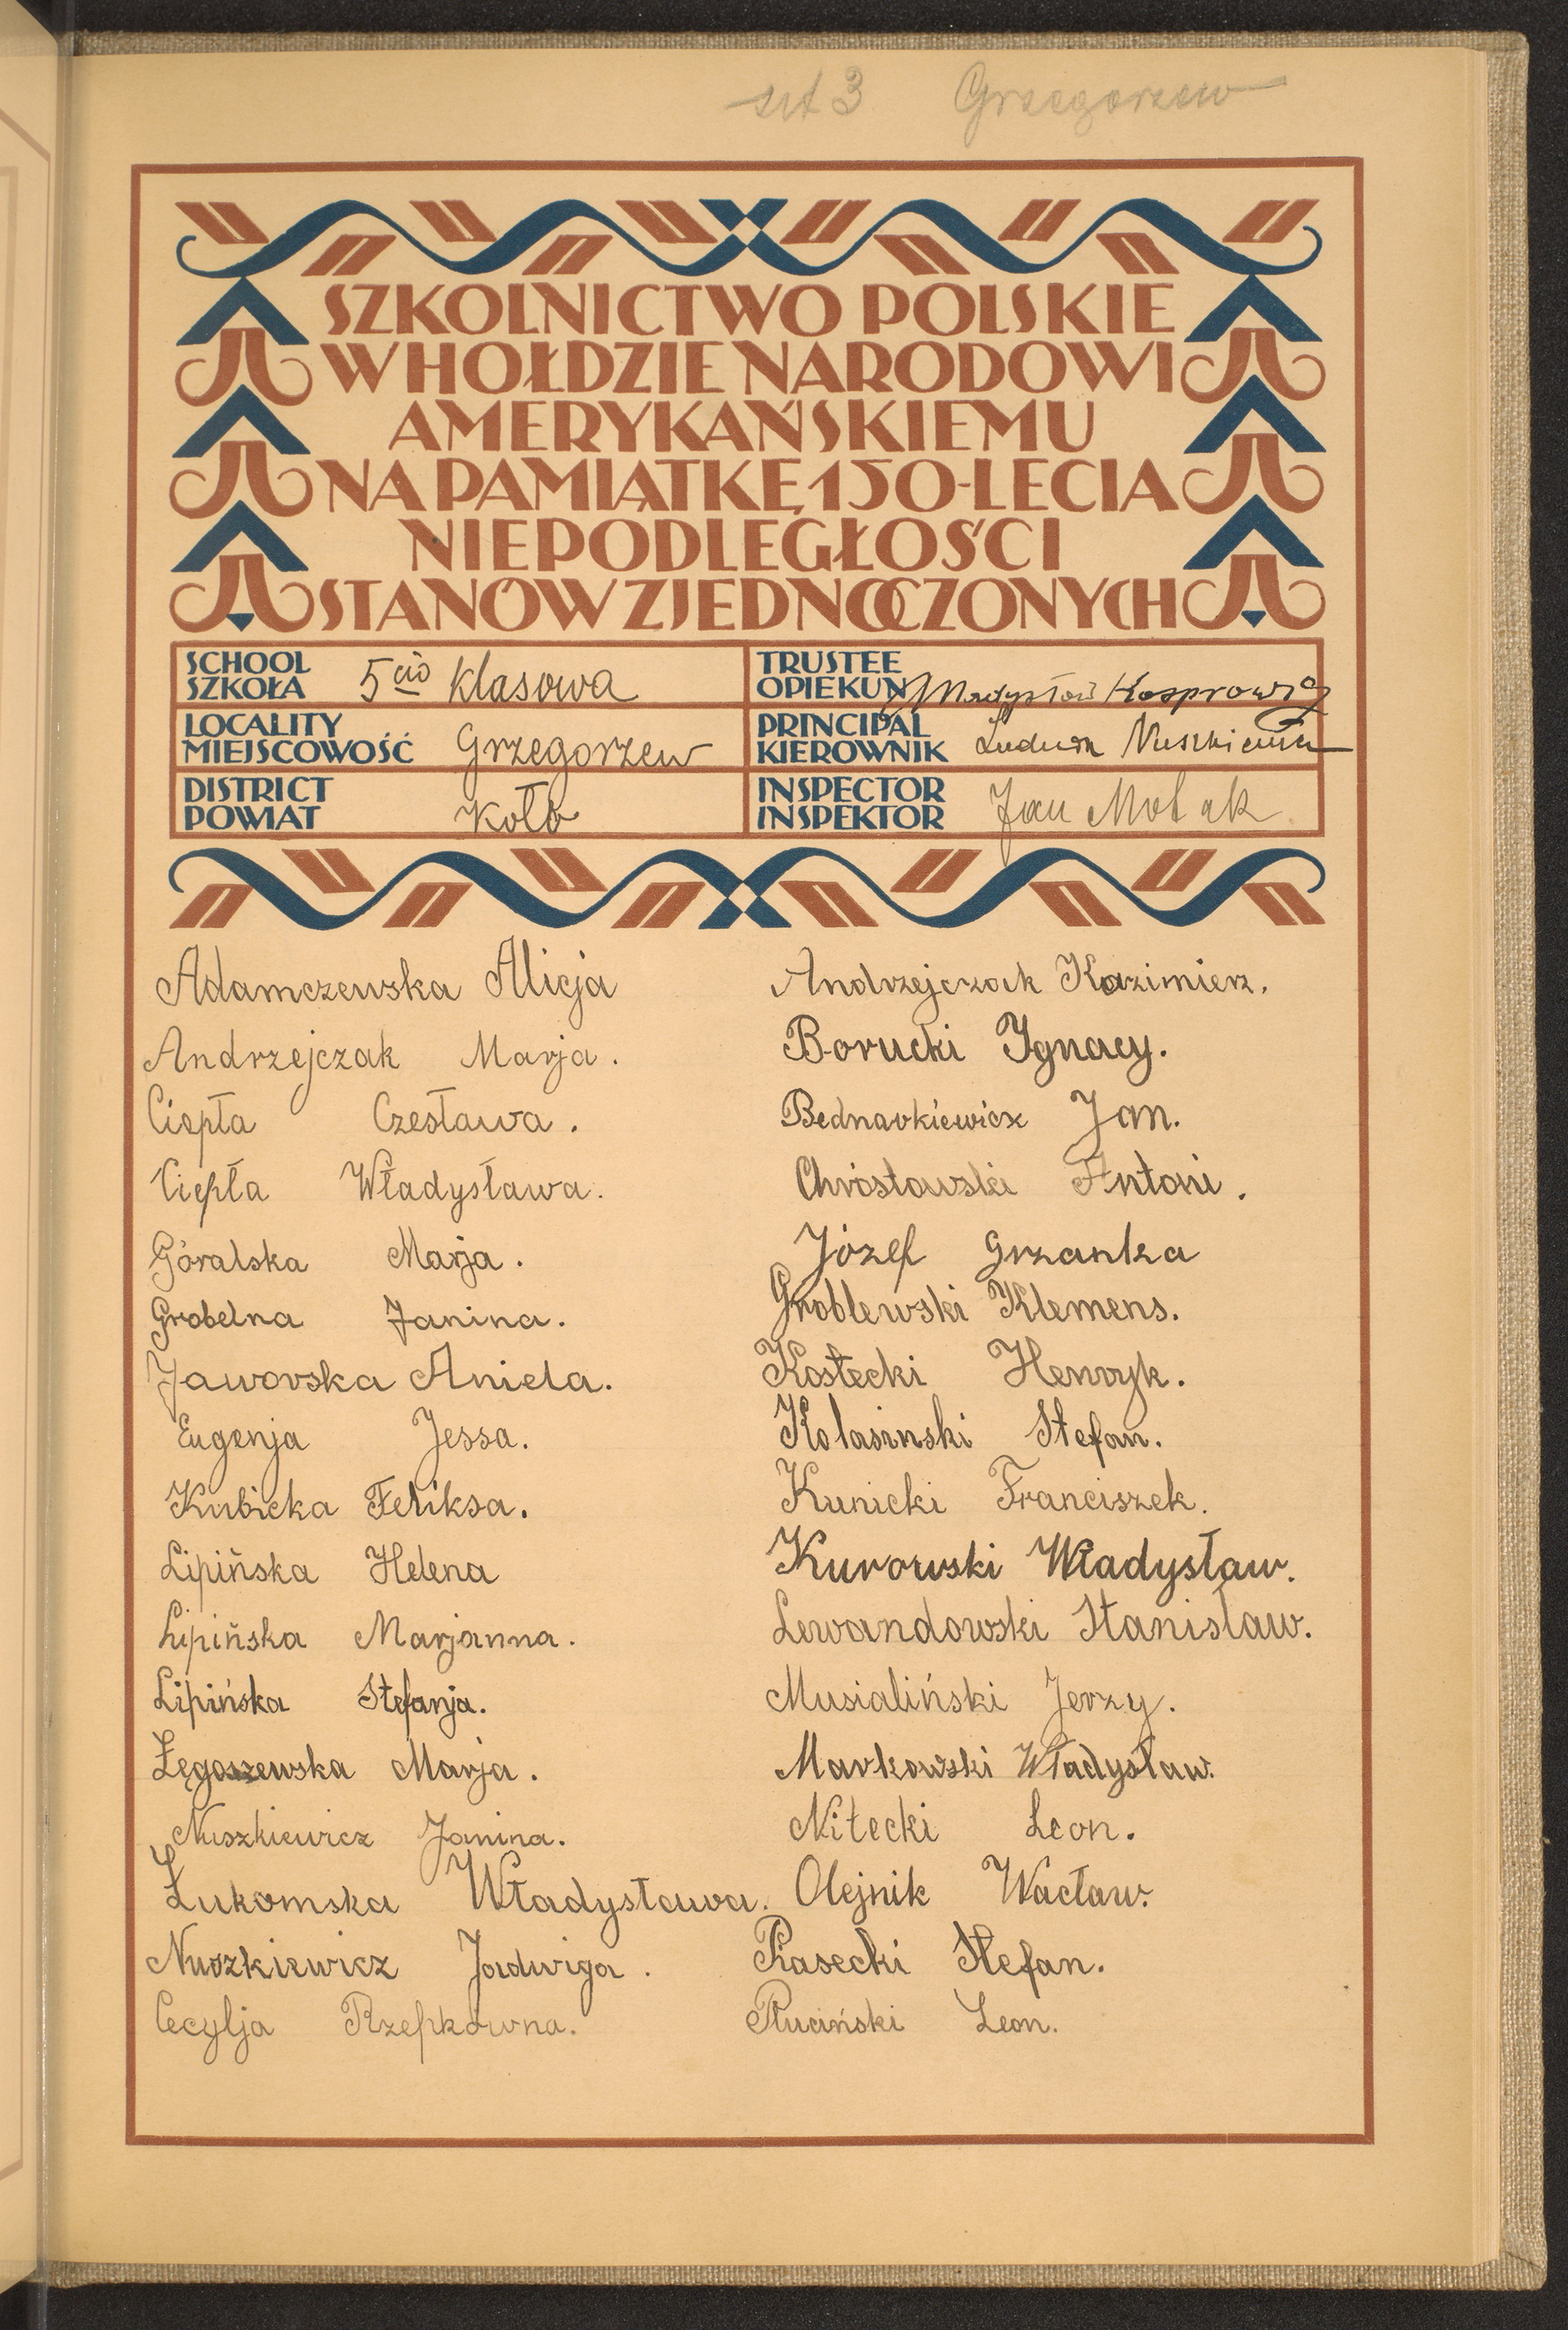 szt 3 Grzegorzew
SZKOLNICTWO POLSKIE
W HOŁDZIE NARODOWI
AMERYKAŃSKIEMU
NA PAMIĄTKĘ 150-LECIA
NIEPODLEGŁOŚCI
STANÓW ZJEDNOCZONYCH
SCHOOL
SZKOŁA 5cio klasowa
TRUSTEE
OPIEKUN Władysław Kasprowicz
LOCALITY
MIEJSCOWOŚĆ Grzegorzew
PRINCIPAL
KIEROWNIK Ludwik Nuszkiewicz
DISTRICT
POWIAT Koło
INSPECTOR
INSPEKTOR Jan
Adamczewska Alicja
Andrzejczak Marja.
Ciepła Czesława.
Ciepła Władysława.
Góralska Marja.
Grobelna Janina.
Jaworska Aniela.
Eugenja Jessa.
Kubicka Feliksa.
Lipińska Helena
Lipińska Marjanna.
Lipińska Stefanja.
Łęgoszewska Marja.
Nuszkiewicz Janina.
Łukomska Władysława.
Nuszkiewicz Jadwiga.
Cecylja Rzepkówna.
Andrzejczak Kazimierz.
Borucki Ignacy.
Bednarkiewicz Jan.
Chróstowski Antoni.
Józef Grzanka
Groblewski Klemens.
Kostecki Henryk.
Kolasinski Stefan.
Kunicki Franciszek.
Kurowski Władysław.
Lewandowski Stanisław.
Musialiński Jerzy.
Markowski Władysław.
Nitecki Leon.
Olejnik Wacław.
Piasecki Stefan.
Pluciński Leon.